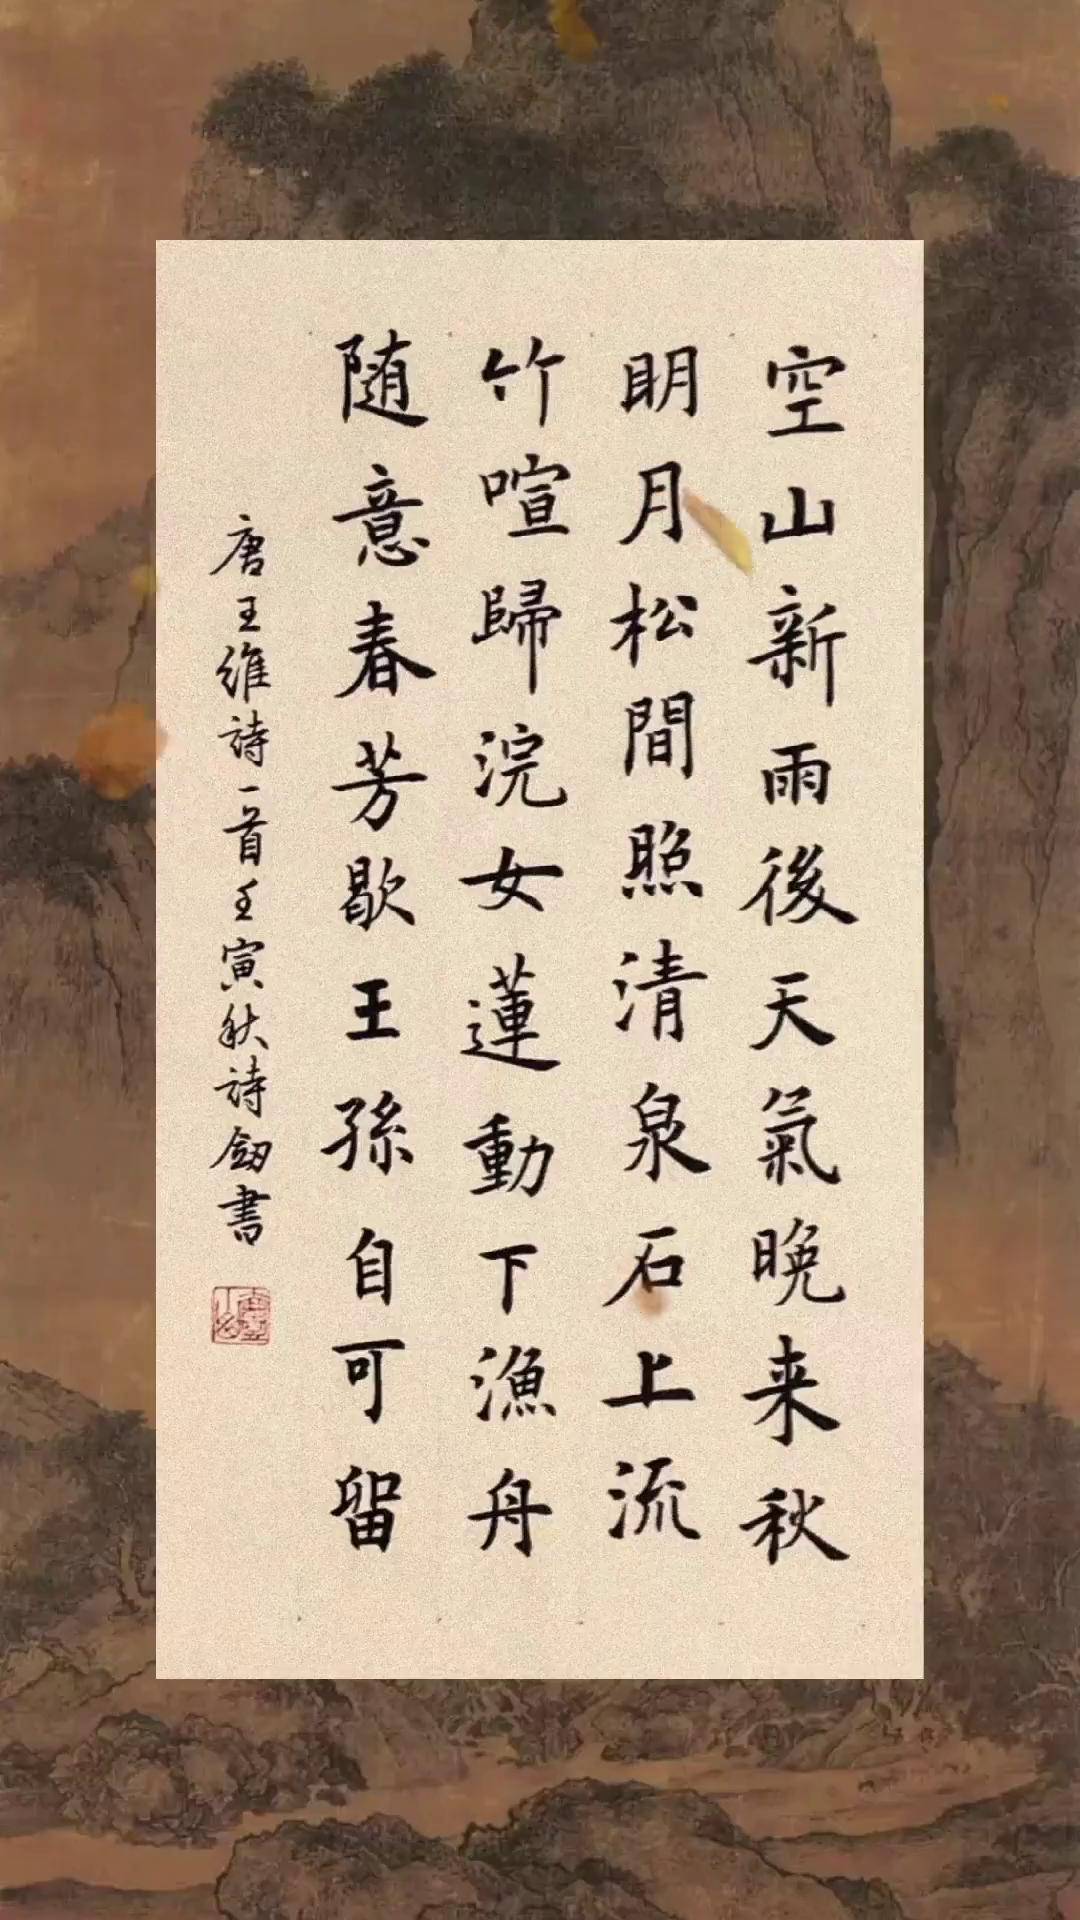 空山新雨後天氣晚来秋
明月松間照清泉石上流
竹喧歸浣女蓮動下漁舟
随意春芳歇王孫自可留
唐王維詩一首壬寅秋詩劔書